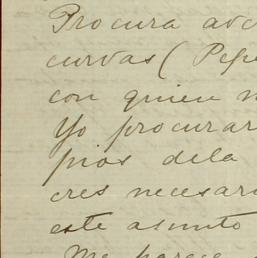 Procura
curvas (Pepe
con quien
Yo procurar
pios dela
cres necesari
este asunto
Me parece